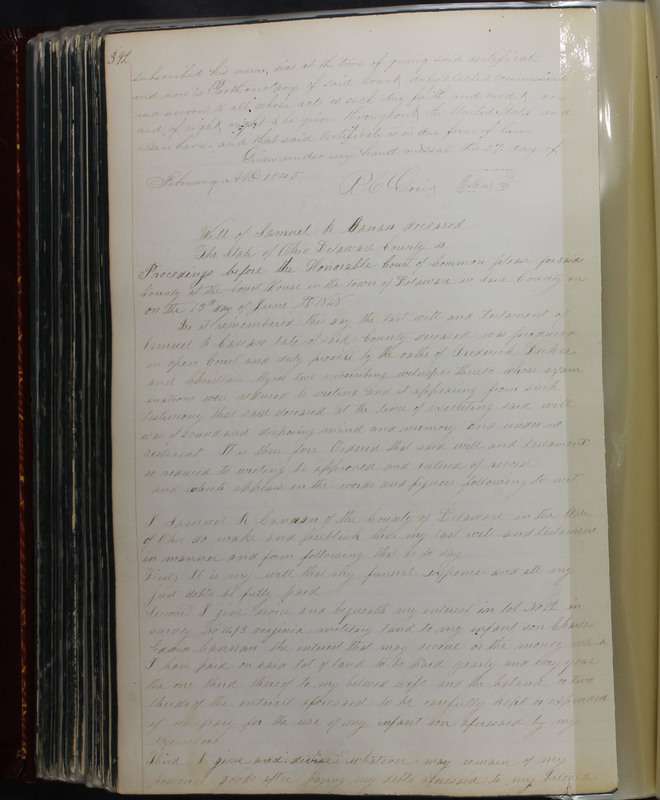 392
subscribed his name, was at the time of giving said certificate
and now is Prothonotary of said County duly elected commissioned
and sworn to all whose acts as such due faith and credit are
and of right ought to be given throughout the United States and
elsewhere and that said Certificate is in due form of Law
Given under my hand and seal this 27 day of
February A.D. 1845
Seal
Will of Samuel R Canan deceased
The State of Ohio Delaware County ss
Procedings before the Honorable Court of Common pleas for said
County at the Court House in the town of Delaware in said County on
on the 13th day of June AD 1845
Be it remembered this day the last will and Testament of
Samuel R Canaan late of said County deceased was produced
in open Court and duly proven by the oaths of Frederick
and Christian Myers two subscribing witnesses thereto whose exam
inations were reduced to writing and it appearing from such
testimony that said deceased at the time of executing said will
was of sound and disposing mind and memory and under no
restraint It is there fore Ordered that said will and testament
so reduced to writing be approved and entered of record
and which appears in the words and figures following to wit
I Samuel R Canaan of the County of Delaware in the State
of Ohio do make and publish this my last will and testament
in manner and form following that is to say
First, It is my will that my funeral expences and all my
just debts be fully paid
Second I give devise and bequeath my interest in lot No 12 in
survey No virginia military land to my infant son Charles
Edwin Cannan the interest that may accrue on the money which
I have paid on said lot of land to be paid yearly and every year
the one third thereof to my beloved wife and the balance or two
thirds of the interest aforesaid to be carefully kept or expended
if necessary for the use of my infant son aforesaid by my
executors
Third I give and devise whatever may remain of my
personal goods after paying my debts aforesaid to my beloved